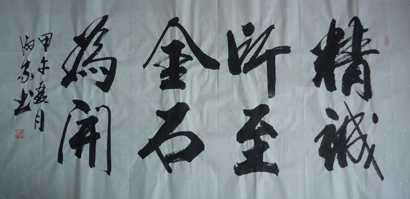 精诚
所至
金石
為開
甲午春月